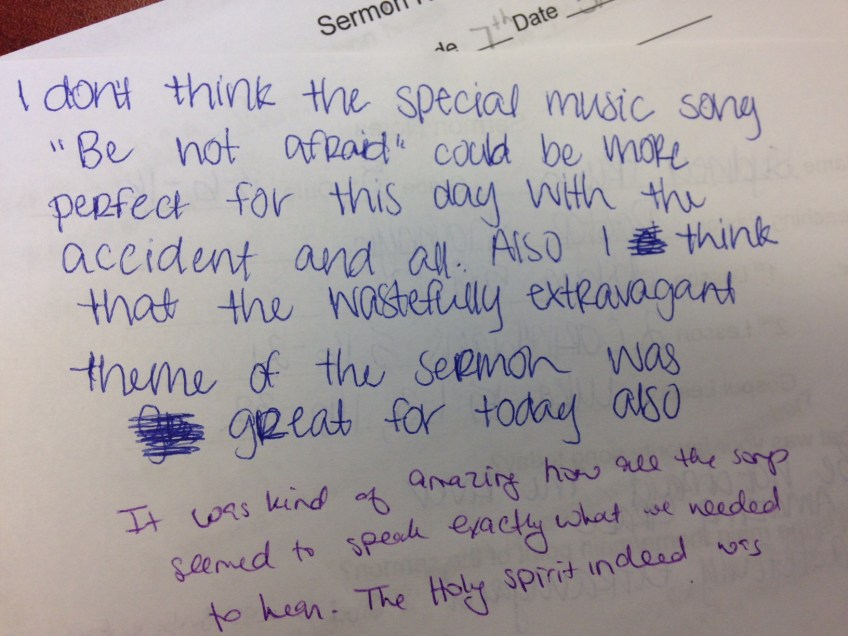 Sermon
de 7th Date
I dont think the special music song
"Be not afraid" could be more
perfect for this day with the
accident and all. Also I think
that the wastefully extravagant
theme of the sermon was
great for today also
It was kind of amazing how all the songs
seemed to speak exactly what we needed
to hear. The Holy spirit indeed was